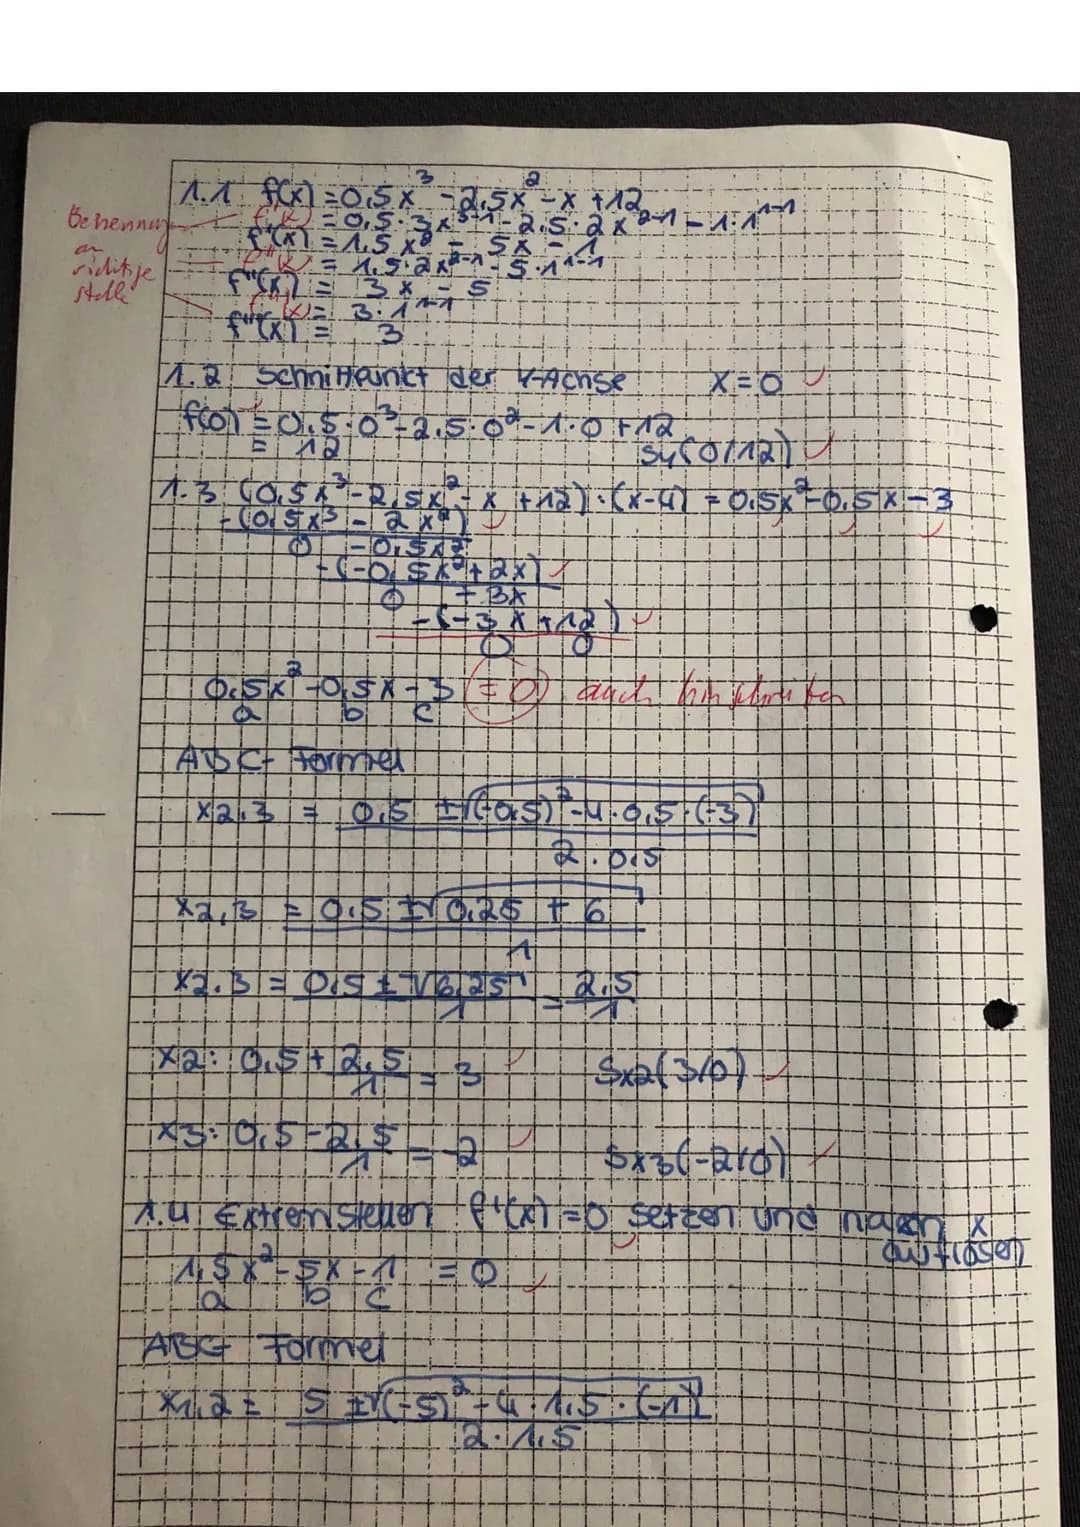 1.1 f(x) = 0,5x³ - 2,5x² - x + 12
f'(x) = 0,5·3x³⁻¹ - 2,5·2x²⁻¹ - 1·1¹⁻¹
Benennung an richtige Stelle
f'(x) = 1,5x² - 5x - 1
f''(x) = 1,5·2x²⁻¹ - 5·1¹⁻¹
f''(x) = 3x - 5
f'''(x) = 3·1¹⁻¹
f'''(x) = 3
1.2 Schnittpunkt der Y-Achse x = 0
f(0) = 0,5·0³ - 2,5·0² - 1·0 + 12
= 12 Sy(0/12)
1.3 (0,5x³ - 2,5x² - x + 12) : (x-4) = 0,5x² - 0,5x - 3
-(0,5x³ - 2x²)
0 -0,5x²
-(-0,5x² + 2x)
0 + 3x
-(-3x + 12)
0 0
0,5x² - 0,5x - 3 = 0 auch hinschreiben
a b c
ABC-Formel
x2,3 = 0,5 ± √(-0,5)² - 4·0,5·(-3)
2·0,5
x2,3 = 0,5 ± √0,25 + 6
1
x2,3 = 0,5 ± √6,25 = 2,5
1 1
x2: 0,5 + 2,5 = 3 Sx2(3/0)
1
x3: 0,5 - 2,5 = -2 Sx3(-2/0)
1
1.4 Extremstellen f'(x) = 0 setzen und nach x
auflösen
1,5x² - 5x - 1 = 0
a b c
ABC Formel
x1,2 = 5 ± √(-5)² - 4·1,5·(-1)
2·1,5